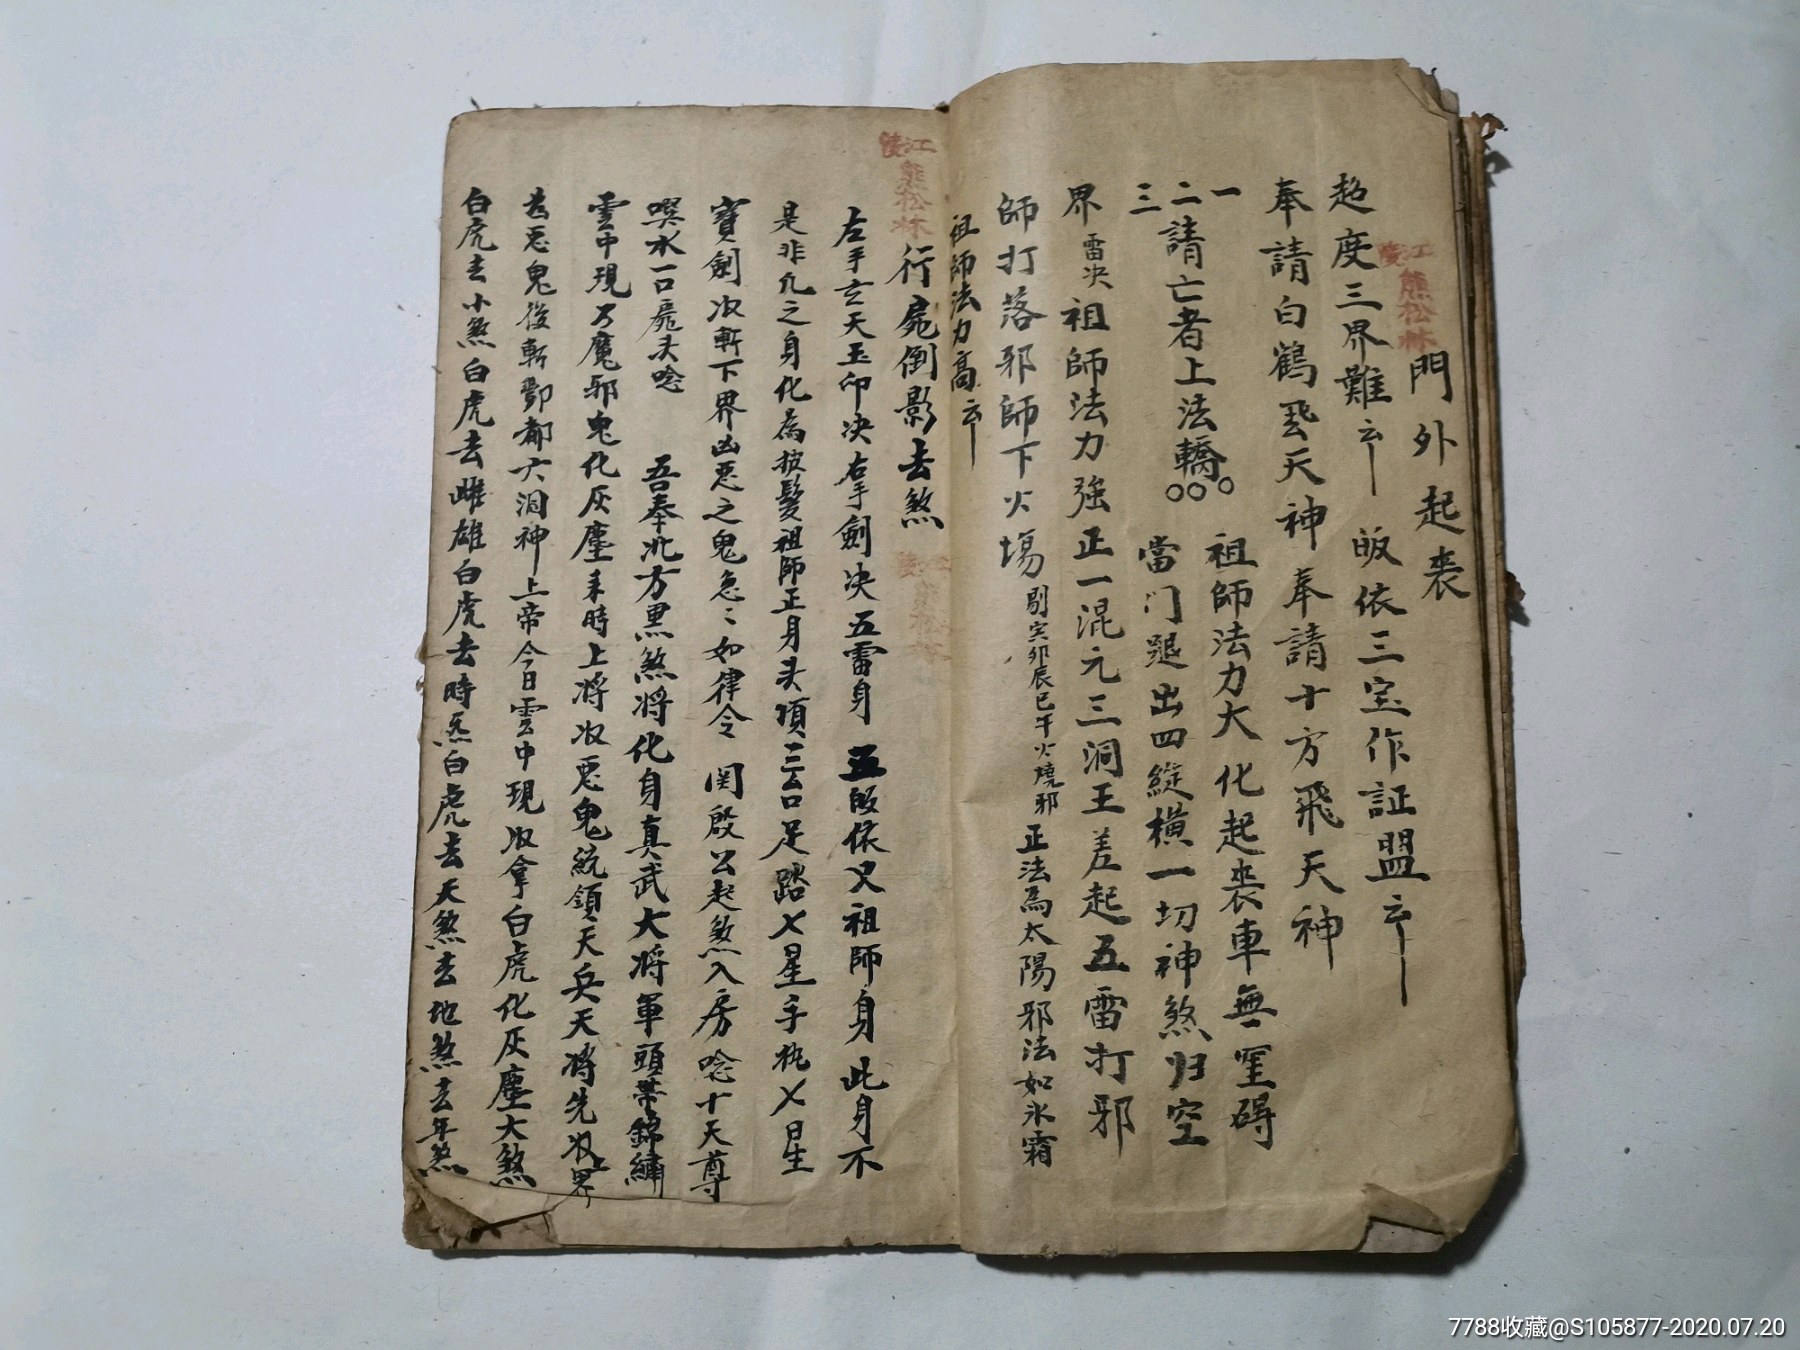 江陵熊松林
門外起丧
超度三界難云 皈依三宝作証盟云
奉請白鶴飛天神 奉請十方飛天神
一二三請亡者上法轎 祖師法力大化起丧車無罣碍
當门退出四縱横一切神煞归空
界雷决祖師法力強正一混元三洞王差起五雷打邪
師打落邪師下火塲 剔寅卯辰巳午火燒邪 正法爲太陽邪法如氷霜
祖師法力高云
江陵熊松林
行屍倒影去煞
左手玄天玉印决右手劍决五雷身五皈依又祖師身此身不
是非凡之身化為披髮祖師正身头頂三台口足踏七星手执七星
寶劍收斬下界凶惡之鬼急〻如律令 関啟公起煞入房唸十天尊
噀水一口屍头唸 吾奉北方黑煞将化身真武大将軍頭帶錦繡
雲中現 魔邪鬼化灰塵来時上将收惡鬼統領天兵天将先收上界
惡鬼後斬酆都六洞神上帝今日雲中現收拿白虎化灰塵大煞
白虎去小煞白虎去雌雄白虎去時炁白虎去天煞去地煞去年煞
7788收藏@S105877-2020.07.20